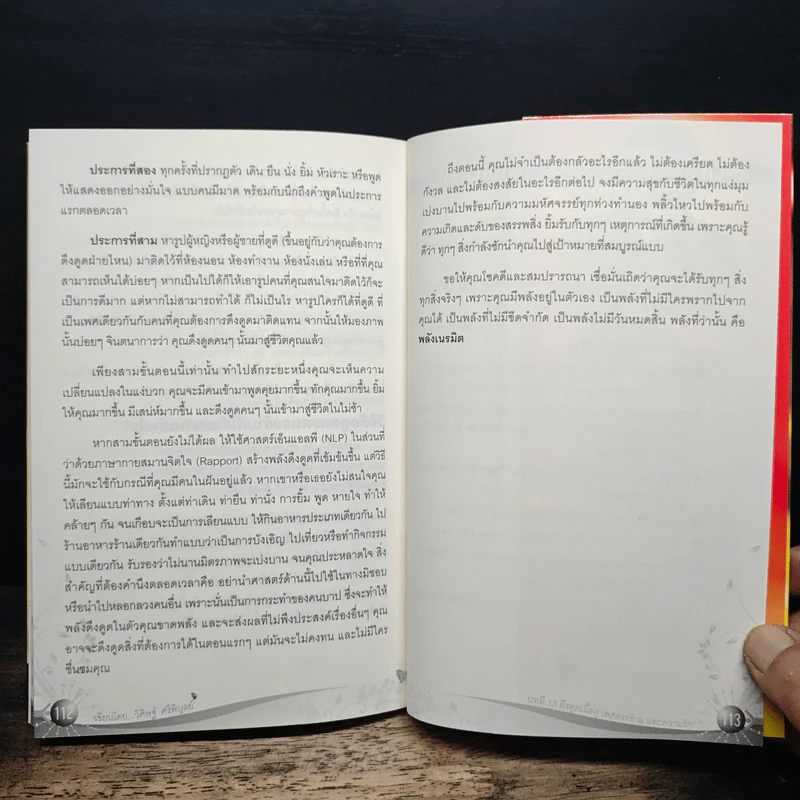 ประการที่สอง ทุกครั้งที่ปรากฏตัว เดิน ยืน นั่ง ยิ้ม หัวเราะ หรือพูด
ให้แสดงออกอย่างมั่นใจ แบบคนมีมาด พร้อมกับนึกถึงคำพูดในประการ
แรกตลอดเวลา
ประการที่สาม หารูปผู้หญิงหรือผู้ชายที่ดูดี (ขึ้นอยู่กับว่าคุณต้องการ
ดึงดูดฝ่ายไหน) มาติดไว้ที่ห้องนอน ห้องทำงาน ห้องนั่งเล่น หรือที่ที่คุณ
สามารถเห็นได้บ่อยๆ หากเป็นไปได้ก็ให้เอารูปคนที่คุณสนใจมาติดไว้ก็จะ
เป็นการดีมาก แต่หากไม่สามารถทำได้ ก็ไม่เป็นไร หารูปใครก็ได้ที่ดูดี ที่
เป็นเพศเดียวกันกับคนที่คุณต้องการดึงดูดมาติดแทน จากนั้นให้มองภาพ
นั้นบ่อยๆ จินตนาการว่า คุณดึงดูดคนๆ นั้นมาสู่ชีวิตคุณแล้ว
เพียงสามขั้นตอนนี้เท่านั้น ทำไปสักระยะหนึ่งคุณจะเห็นความ
เปลี่ยนแปลงในแง่บวก คุณจะมีคนเข้ามาพูดคุยมากขึ้น ทักคุณมากขึ้น ยิ้ม
ให้คุณมากขึ้น มีเสน่ห์มากขึ้น และดึงดูดคนๆ นั้นเข้ามาสู่ชีวิตในไม่ช้า
หากสามขั้นตอนยังไม่ได้ผล ให้ใช้ศาสตร์เอ็นแอลพี (NLP) ในส่วนที่
ว่าด้วยภาษากายสมานจิตใจ (Rapport) สร้างพลังดึงดูดที่เข้มข้นขึ้น แต่วิธี
นี้มักจะใช้กับกรณีที่คุณมีคนในฝันอยู่แล้ว หากเขาหรือเธอยังไม่สนใจคุณ
ให้เลียนแบบท่าทาง ตั้งแต่ท่าเดิน ท่ายืน ท่านั่ง การยิ้ม พูด หายใจ ทำให้
คล้ายๆ กัน จนเกือบจะเป็นการเลียนแบบ ให้กินอาหารประเภทเดียวกัน ไป
ร้านอาหารร้านเดียวกันทำแบบว่าเป็นการบังเอิญ ไปเที่ยวหรือทำกิจกรรม
แบบเดียวกัน รับรองว่าไม่นานมิตรภาพจะเบ่งบาน จนคุณประหลาดใจ สิ่ง
สำคัญที่ต้องคำนึงตลอดเวลาคือ อย่านำศาสตร์ด้านนี้ไปใช้ในทางมิชอบ
หรือนำไปหลอกลวงคนอื่น เพราะนั่นเป็นการกระทำของคนบาป ซึ่งจะทำให้
พลังดึงดูดในตัวคุณขาดพลัง และจะส่งผลที่ไม่พึงประสงค์เรื่องอื่นๆ คุณ
อาจจะดึงดูดสิ่งที่ต้องการได้ในตอนแรกๆ แต่มันจะไม่คงทน และไม่มีใคร
ชื่นชมคุณ
112
เขียนโดย.. วิศิษฐ์ ศรีพิบูลย์
ถึงตอนนี้ คุณไม่จำเป็นต้องกลัวอะไรอีกแล้ว ไม่ต้องเครียด ไม่ต้อง
กังวล และไม่ต้องสงสัยในอะไรอีกต่อไป จงมีความสุขกับชีวิตในทุกแง่มุม
เบ่งบานไปพร้อมกับความมหัศจรรย์ทุกท่วงทำนอง พลิ้วไหวไปพร้อมกับ
ความเกิดและดับของสรรพสิ่ง ยิ้มรับกับทุกๆ เหตุการณ์ที่เกิดขึ้น เพราะคุณรู้
ดีว่า ทุกๆ สิ่งกำลังชักนำคุณไปสู่เป้าหมายที่สมบูรณ์แบบ
ขอให้คุณโชคดีและสมปรารถนา เชื่อมั่นเถิดว่าคุณจะได้รับทุกๆ สิ่ง
ทุกสิ่งจริงๆ เพราะคุณมีพลังอยู่ในตัวเอง เป็นพลังที่ไม่มีใครพรากไปจาก
คุณได้ เป็นพลังที่ไม่มีขีดจำกัด เป็นพลังไม่มีวันหมดสิ้น พลังที่ว่านั้น คือ
พลังเนรมิต
บทที่ 13 ดึงดูดเนื้อคู่ เพศตรงข้าม และความรัก
113